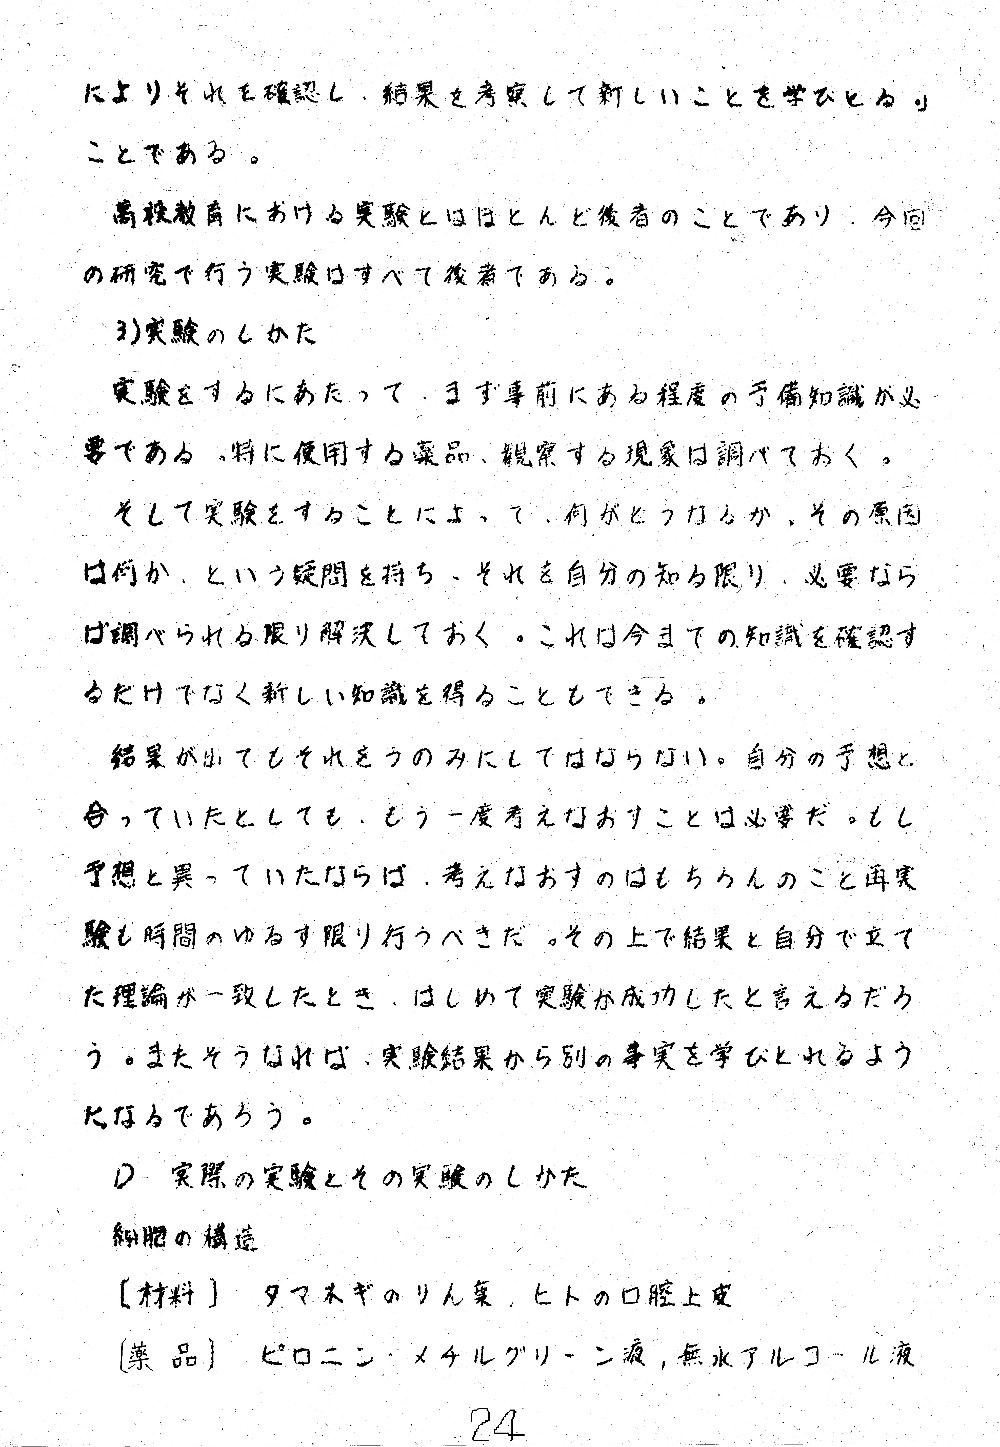 によりそれを確認し、結果を考察して新しいことを学びとる。」
ことである。
高校教育における実験とはほとんど後者のことであり、今回
の研究で行う実験はすべて後者である。
3)実験のしかた
実験をするにあたって、まず事前にある程度の予備知識が必
要である。特に使用する薬品、観察する現象は調べておく。
そして実験をすることによって、何がどうなるか、その原因
は何か、という疑問を持ち、それを自分の知る限り、必要なら
ば調べられる限り解決しておく。これは今までの知識を確認す
るだけでなく新しい知識を得ることもできる。
結果が出てもそれをうのみにしてはならない。自分の予想と
合っていたとしても、もう一度考えなおすことは必要だ。もし
予想と異っていたならば、考えなおすのはもちろんのこと再実
験も時間のゆるす限り行うべきだ。その上で結果と自分で立て
た理論が一致したとき、はじめて実験が成功したと言えるだろ
う。またそうなれば、実験結果から別の事実を学びとれるよう
になるであろう。
D 実際の実験とその実験のしかた
細胞の構造
[材料] タマネギのりん葉、ヒトの口腔上皮
[薬品] ピロニン・メチルグリーン液,無水アルコール液
24